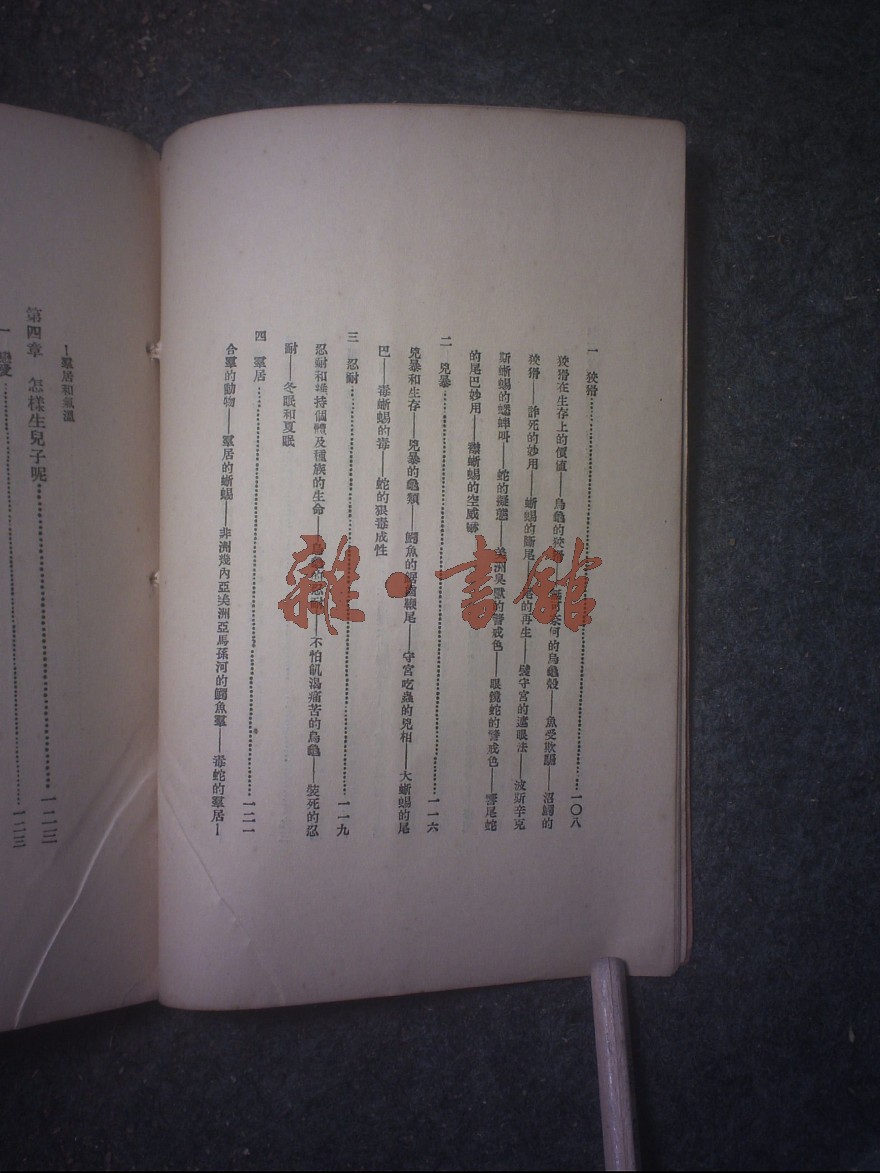 一　狡猾…………一〇八
狡猾在生存上的價值——烏龜的狡猾——無可奈何的烏龜殼——魚受欺騙——沼鱷的
狡猾——詐死的妙用——蜥蜴的斷尾——尾的再生——守宮的遮眼法——波斯辛克
斯蜥蜴的蟋蟀叫——蛇的擬態——美洲臭獸的警戒色——眼鏡蛇的警戒色——響尾蛇
的尾巴妙用——蜥蜴的空威嚇
二　兇暴…………一一六
兇暴和生存——兇暴的龜類——鱷魚的鋸齒鞭尾——守宮吃蟲的兇相——大蜥蜴的尾
巴——毒蜥蜴的毒——蛇的狠毒成性
三　忍耐…………一一九
忍耐和維持個體及種族的生命——烏龜的忍耐——不怕飢渴痛苦的烏龜——裝死的忍
耐——冬眠和夏眠
四　羣居…………一二一
合羣的動物——羣居的蜥蜴——非洲幾內亞美洲亞馬孫河的鱷魚羣——毒蛇的羣居—
—羣居和氣溫
第四章　怎樣生兒子呢…………一二三
一　戀愛…………一二三
雜·書館